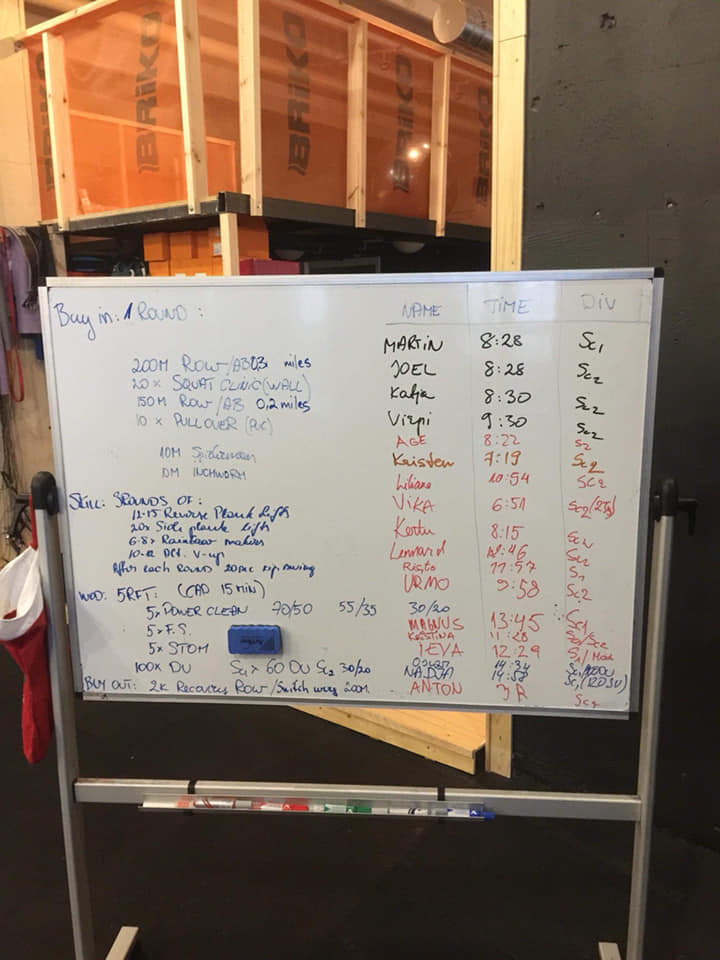 BRIKO
BRIKO
BRIKO
BRIKO
Buy in: 1 ROUND :
200M ROW/AB 0,3 miles
20 x SQUAT CLINIC (WALL)
150M ROW/AB 0,2 miles
10 x PULLOVER (PVC)
10M Spiderman
10M INCHWORM
Skill: 3 ROUNDS OF :
12-15 Reverse Plank Lifts
20x Side plank lifts
6-8x Rainbow makers
10-12 V-up
After each Round 20sec
WOD: 5RFT: (CAP 15 MIN)
5x POWER CLEAN 70/50 55/35 30/20
5x F.S.
5x STOM
100x DU Sc1 x 60 DU Sc2 30/20
BUY OUT: 2K Recovery Row/Switch every 200M
NAME TIME DIV
MARTIN 8:28 Sc1
JOEL 8:28 Sc2
Katja 8:30 Sc2
Virpi 9:30 Sc2
AGE 8:22 S2
Kristen 7:19 Sc2
Liliana 10:54 SC2
VIKA 6:51 Sc2
Kertu 8:15 Sc2
Lennard :46 Sc2
Risto 11:57 S1
URMO 9:58 Sc2
MAGNUS 13:45 Sc1
KRISTINA 11:28
IEVA 12:29
14:34
NADJA 14:58
ANTON